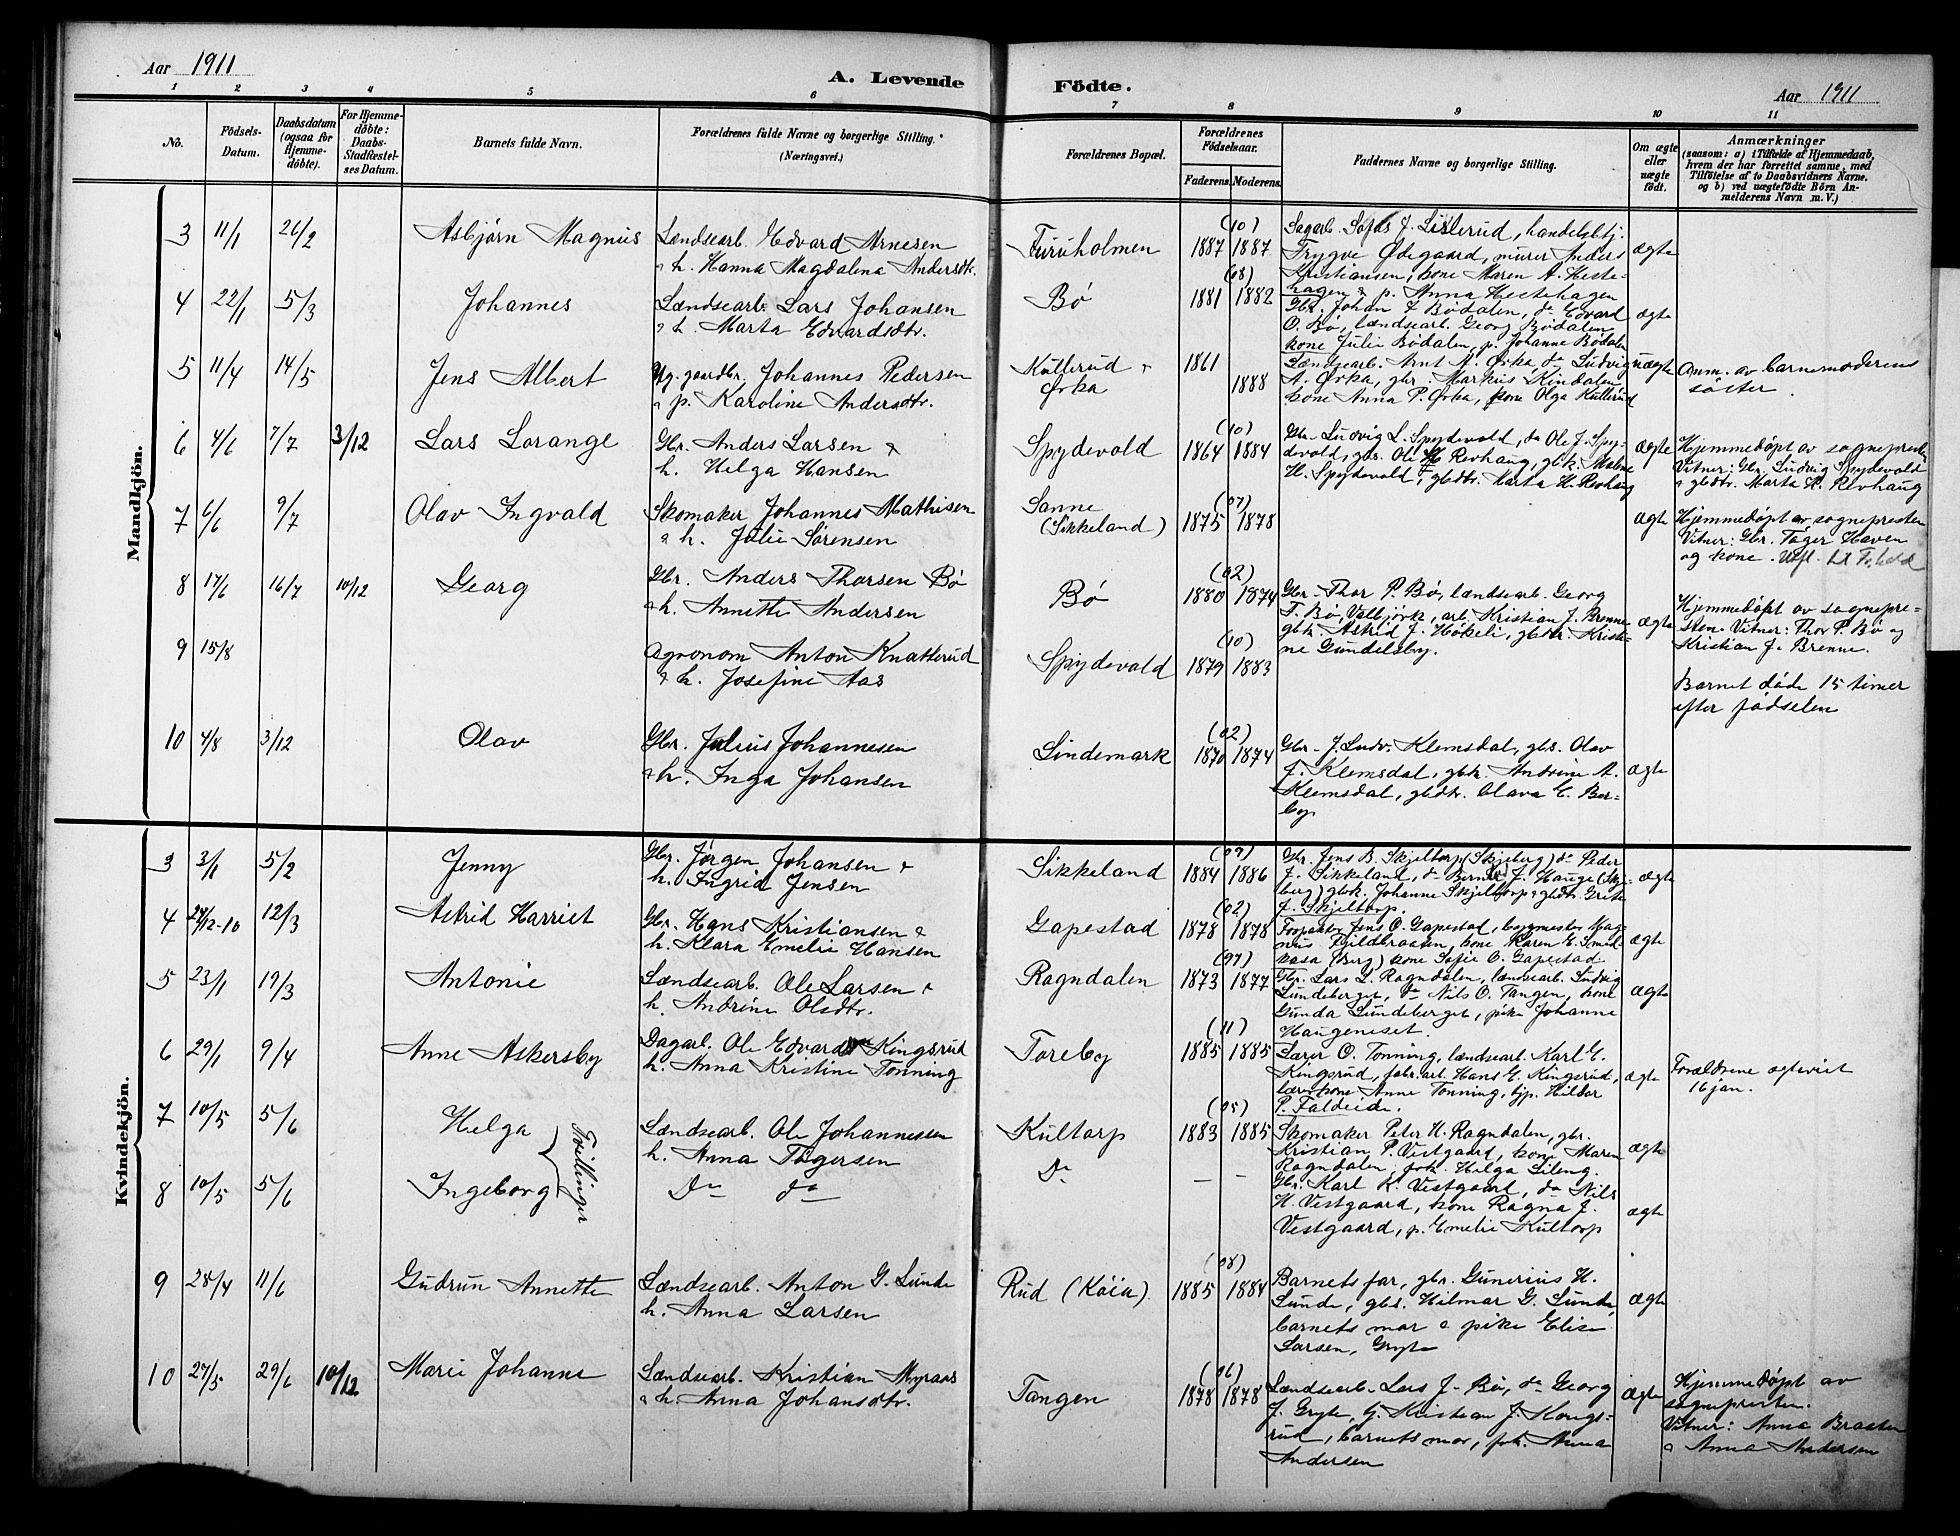 Aar 1911
A. Levende Födte.
Aar 1911
1 2 3 4 5 6 7 8 9 10 11
No.
Födsels-Datum.
Daabsdatum (ogsaa for Hjemme-döbte).
For Hjemme-döbte: Daabs-Stadfæstel-ses Datum.
Barnets fulde Navn.
Forældrenes fulde Navne og borgerlige Stilling.
(Næringsvei.)
Forældrenes Bopæl.
Forældrenes Födselsaar.
Faderens. Moderens.
Faddernes Navne og borgerlige Stilling.
Om ægte eller uægte födt.
Anmærkninger
(saasom: a) i Tilfælde af Hjemmedaab,
hvem der har forrettet samme, med
Tilföielse af to Daabsvidners Navne,
og b) ved uægtefödte Börn An-
melderens Navn m. V.)
Mandkjön.
3 11/1 26/2 Asbjørn Magnus
Lændsearb. Edvard Arnesen
& h. Hanna Magdalena Andersdtr.
Furuholmen
(10)
1887 1887
Sagarb. Sofus J. Listerud, handelsbtj.
Trygve Ødegaard, murer Anders
Kristiansen, kone Maren A. Heste-
hagen & p. Anna Hestehagen
ægte
4 22/1 5/3 Johannes
Lændsearb. Lars Johansen
& h. Marta Edvardsdtr.
Bø
(08)
1881 1882
Gbr. Johan J. Bødalen, do Edvard
O. Bø, lændsearb. Georg Bødalen
kone Julie Bødalen, p. Johanne Bødalen
ægte
5 11/4 14/5 Jens Albert
Ug. gaardbr. Johannes Pedersen
& p. Karoline Andersdtr.
Kullerud &
Ørka
1861
1888
Lændsearb. Arnt A. Ørka, do Ludvig
A. Ørka, gbr. Markus Kindalen,
kone Anna P. Ørka, kone Olga Kullerud
uægte
Anm. av barnemoderens
søster.
6 4/6 7/7 3/12 Lars Lorange
Gbr. Anders Larsen &
h. Helga Hansen
Spydevold
(10)
1864 1884
Gbr. Ludvig L. Spydevold, do Ole J. Spy-
devold, gbs. Ole H. Revhaug, gbk. Malene
H. Spydevold, gbdtr. Marta H. Revhaug
ægte
Hjemmedøpt av sognepresten
Vitner: Gbr. Ludvig Spydevold
& gbdtr. Marta H. Revhaug
7 6/6 9/7 Olav Ingvald
Skomaker Johannes Mathisen
& h. Julie Sørensen
Sanne
(Sikkeland)
(07)
1875 1878
ægte
Hjemmedøpt av sognepresten
Vitner: Gbr. Tøger Haven
og kone.
8 17/6 16/7 10/12 Georg
Gbr. Anders Thorsen Bø
& h. Annette Andersen
Bø
(02)
1880 1874
Gbr. Thor P. Bø, lændsearb. Georg
T. Bø, Valbjørke, arb. Kristian J. Brenne
gbk. Astrid J. Høkeli, gbdtr. Kristi-
ne Gundelsby.
ægte
Hjemmedøpt av sognepre-
sten. Vitner: Thor P. Bø og
Kristian J. Brenne.
9 15/8
Agronom Anton Knatterud
& h. Josefine Aas
Spydevold
(10)
1879 1883
Barnet døde 15 timer
efter fødselen
10 4/8 3/12 Olav
Gbr. Julius Johannesen
& h. Inga Johansen
Lindemark
(02)
1870 1874
Gbr. J. Ludv. Klemsdal, gbs. Olav
J. Klemsdal, gbk. Andrine A.
Klemsdal, gbdtr. Olava E. Ber-
by
ægte
Kvindekjön.
3 3/1 5/2 Jenny
Gbr. Jørgen Johansen &
h. Ingrid Jensen
Sikkeland
(09)
1884 1886
Gbr. Jens B. Skjeltorp (Skjeberg) do Peder
J. Sikkeland, do Bernt J. Hauge (Skje-
berg) gbk. Johanne Skjeltorp & gbdtr. Grete
J. Skjeltorp.
ægte
4 24/12-10 12/3 Astrid Harriet
Gbr. Hans Kristiansen &
h. Klara Emelie Hansen
Gapestad
(02)
1878 1878
Forpakter Jens O. Gapestad, bygmester Mag-
nus Fjeldbraaten, kone Karen E. Smed-
kasa (Berg) kone Sofie O. Gapestad
ægte
5 23/1 19/3 Antonie
Lændsearb. Ole Larsen &
h. Andrine Olsdtr.
Ragndalen
(97)
1873 1877
Gbr. Lars L. Ragndalen, lændsearb. Ludvig
Lundeberget, do Nils O. Tangen, kone
Gunda Lundeberget, pike Johanne
Haugeneset.
ægte
6 29/1 9/4 Anne Askersby
Dagarb. Ole Edvard Kingsrud
h. Anna Kristine Tonning
Toreby
(11)
1885 1885
Lærer O. Tonning, lændsearb. Karl E.
Kingsrud, fabr.arb. Hans E. Kingsrud,
lærerkone Anne Tonning, tjp. Hilder
P. Faldeide.
ægte
Forældrene egteviet
16 jan.
7 10/5 5/6 Helga
Tvillinger
Lændsearb. Ole Johannessen
h. Anna Tøgersen
Kultorp
(05)
1883 1885
Skomaker Peter H. Ragndalen, gbr.
Kristian P. Vestgaard, kone Maren
Ragndalen, frk. Helga Lileng.
ægte
8 10/5 5/6 Ingeborg
Do do
Do
– –
Gbr. Karl K. Vestgaard, do Nils
H. Vestgaard, kone Ragna J.
Vestgaard, p. Emelie Kultorp
ægte
9 28/4 11/6 Gudrun Annette
Lændsearb. Anton G. Lunde
h. Anna Larsen
Rud (Køia).
(08)
1885 1884
Barnets far, gbr. Gunerius H.
Lunde, gbs. Hilmar G. Lunde,
barnets mor & pike Elise
Larsen, Gryte
ægte
10 27/5 29/6 10/12 Marie Johanne
Lændsearb. Kristian Myraas
& h. Anna Johansdtr.
Tangen
(06)
1878 1878
Lændsearb. Lars J. Bø, do Georg
J. Gryte, G. Kristian J. Kongs-
rud, barnets mor, frk. Anna
Andersen
ægte
Hjemmedøpt av
sognepresten.
Vitner: Anna Braaten
& Anna Andersen